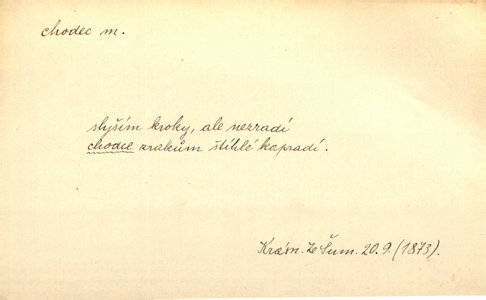 chodec m.
slyším kroky, ale nezradí
chodce zrakům štíhlé kapradí.
Krásn. Ze Šum. 20.9. (1873).